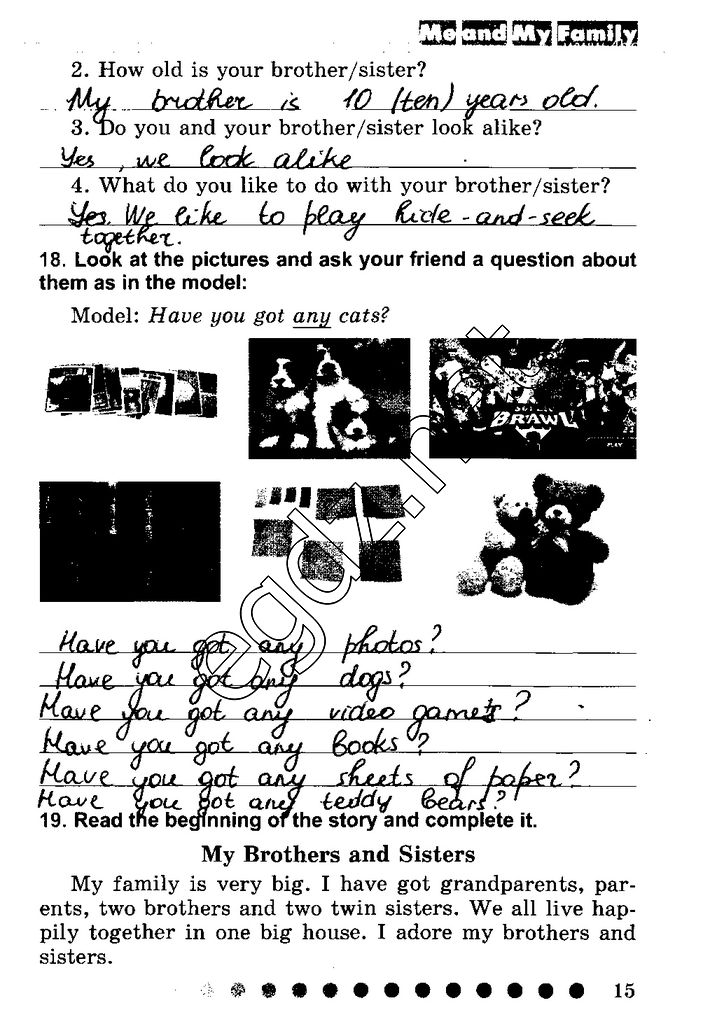 Me and My Family
2. How old is your brother/sister?
My brother is 10 (ten) years old.
3. Do you and your brother/sister look alike?
Yes, we look alike
4. What do you like to do with your brother/sister?
Yes. We like to play hide-and-seek
together.
18. Look at the pictures and ask your friend a question about
them as in the model:
Model: Have you got any cats?
BRAWL
PLAY
egdz.net
Have you got any photos?
Have you got any dogs?
Have you got any video games?
Have you got any books?
Have you got any sheets of paper?
Have you got any teddy bears?
19. Read the beginning of the story and complete it.
My Brothers and Sisters
My family is very big. I have got grandparents, par-
ents, two brothers and two twin sisters. We all live hap-
pily together in one big house. I adore my brothers and
sisters.
15